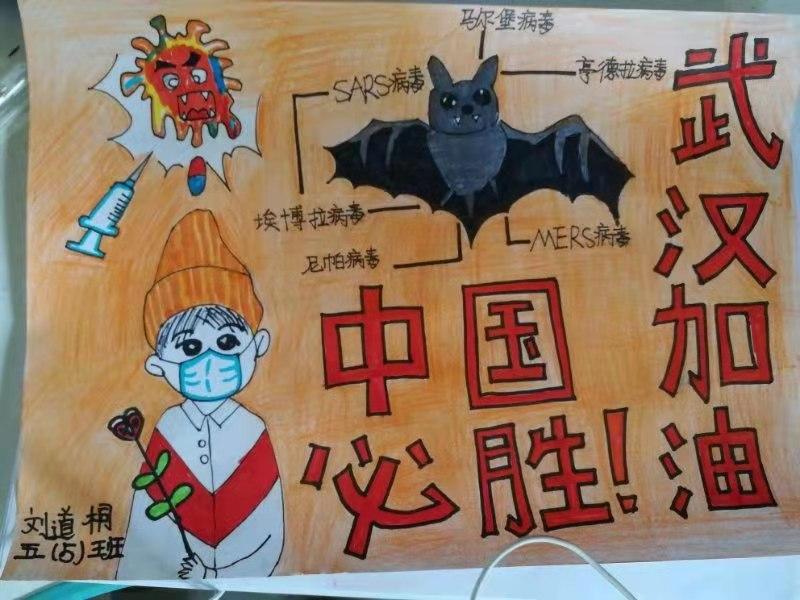 马尔堡病毒
SARS病毒
亨德拉病毒
埃博拉病毒
MERS病毒
尼帕病毒
武汉加油
中国
必胜!
刘道桐
五(5)班